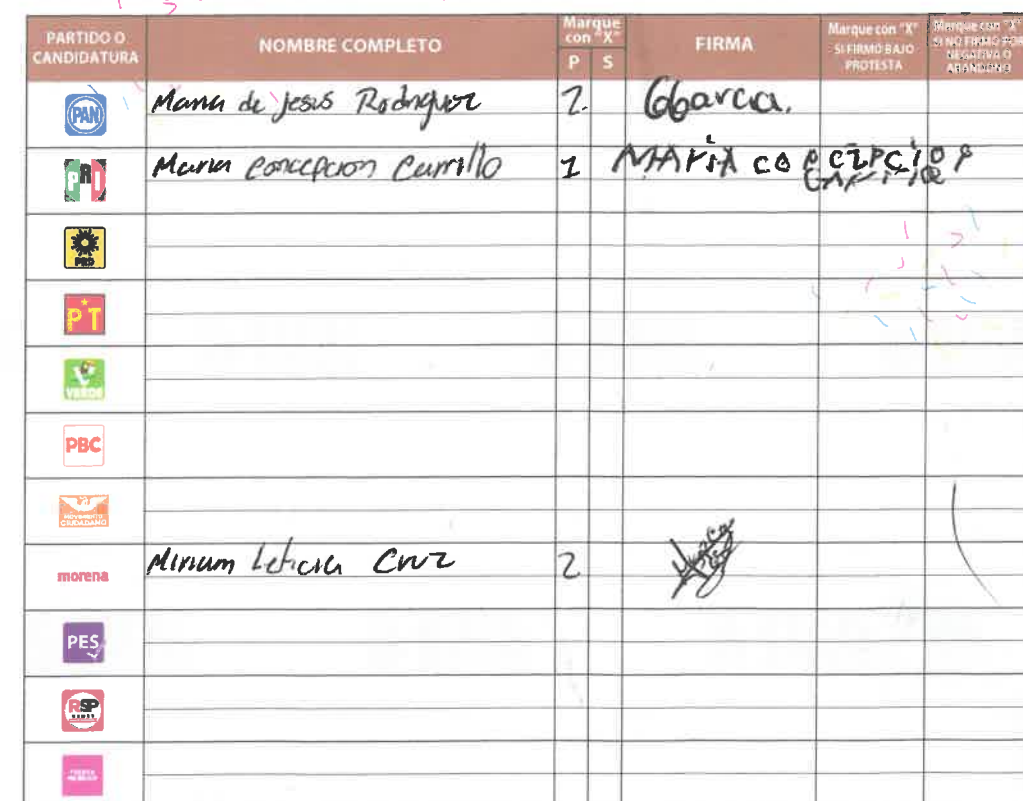 PARTIDO O CANDIDATURA
NOMBRE COMPLETO
Marque con "X"
P S
FIRMA
Marque con "X" SI FIRMÓ BAJO PROTESTA
Marque con "X" SI NO FIRMÓ POR NEGATIVA O ABANDONO
PAN Maria de Jesus Rodriguez 2.
PRI Maria Concepcion Carrillo 1 MARIA
PRD
PT
VERDE
PBC
MOVIMIENTO CIUDADANO
morena Miriam Leticia Cruz 2
PES
RSP